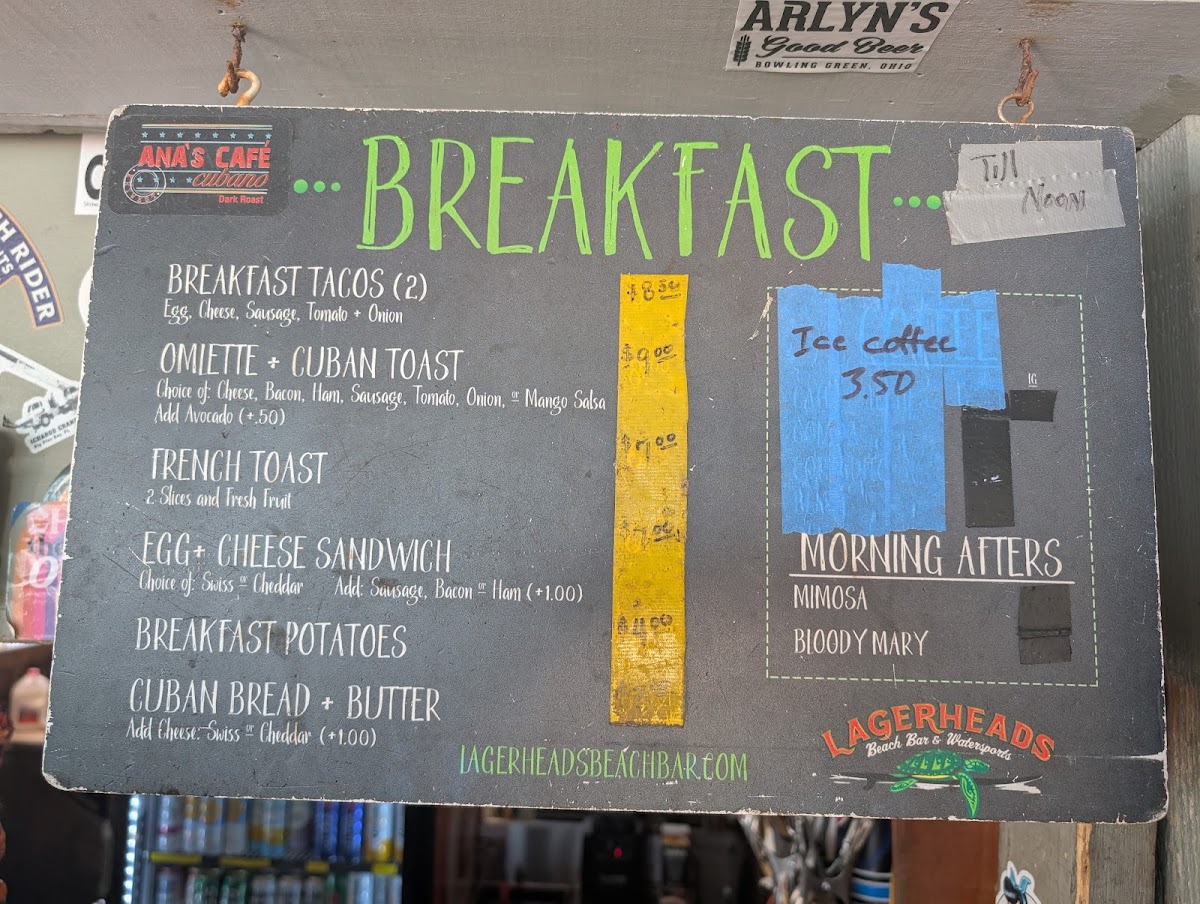 ARLYN'S
Good Beer
BOWLING GREEN, OHIO
ANA'S CAFÉ
cubano
Dark Roast
BREAKFAST
Till
Noon
H RIDER
BREAKFAST TACOS (2)
$8.50
Egg, Cheese, Sausage, Tomato + Onion
OMLETTE + CUBAN TOAST
$9.00
Choice of: Cheese, Bacon, Ham, Sausage, Tomato, Onion, or Mango Salsa
Add Avocado (+.50)
FRENCH TOAST
$7.00
2 Slices and Fresh Fruit
EGG+ CHEESE SANDWICH
$7.00
Choice of: Swiss or Cheddar Add: Sausage, Bacon or Ham (+1.00)
BREAKFAST POTATOES
$4.00
CUBAN BREAD + BUTTER
Add Cheese: Swiss or Cheddar (+1.00)
Ice coffee
3.50
MORNING AFTERS
MIMOSA
BLOODY MARY
LAGERHEADSBEACHBAR.COM
LAGERHEADS
Beach Bar & Watersports